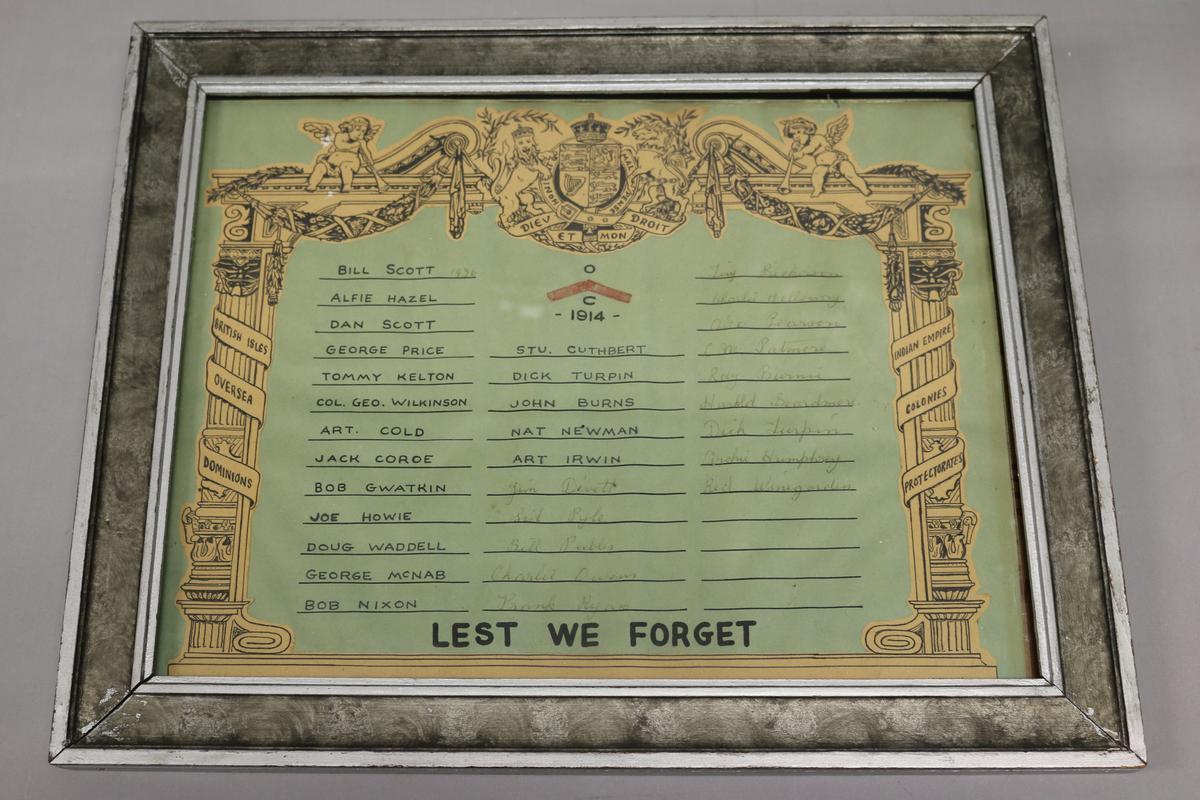 DIEV ET MON DROIT
BRITISH ISLES
OVERSEA
DOMINIONS
BILL SCOTT 1936
ALFIE HAZEL
DAN SCOTT
GEORGE PRICE
TOMMY KELTON
COL. GEO. WILKINSON
ART. COLD
JACK COROE
BOB GWATKIN
JOE HOWIE
DOUG WADDELL
GEORGE MCNAB
BOB NIXON
O
C
- 1914 -
STU. CUTHBERT
DICK TURPIN
JOHN BURNS
NAT NEWMAN
ART IRWIN
Jim Devott
Pyle
Bill
Charlie Owens
Frank Ryan
Pearson
C.W. Patmore
Ray Burns
Harold Beardmore
Dick Turpin
Archie Humphrey
Red Winegarden
INDIAN EMPIRE
COLONIES
PROTECTORATES
LEST WE FORGET